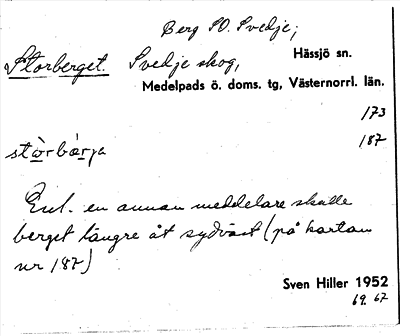 Berg SO. Svedje;
Storberget. Svedje skog, Hässjö sn.
Medelpads ö. doms. tg, Västernorrl. län.
173
187
stòrbær̀ja
Enl. en annan meddelare skulle
berget längre åt sydväst (på kartan
nr 187)
Sven Hiller 1952
69 67